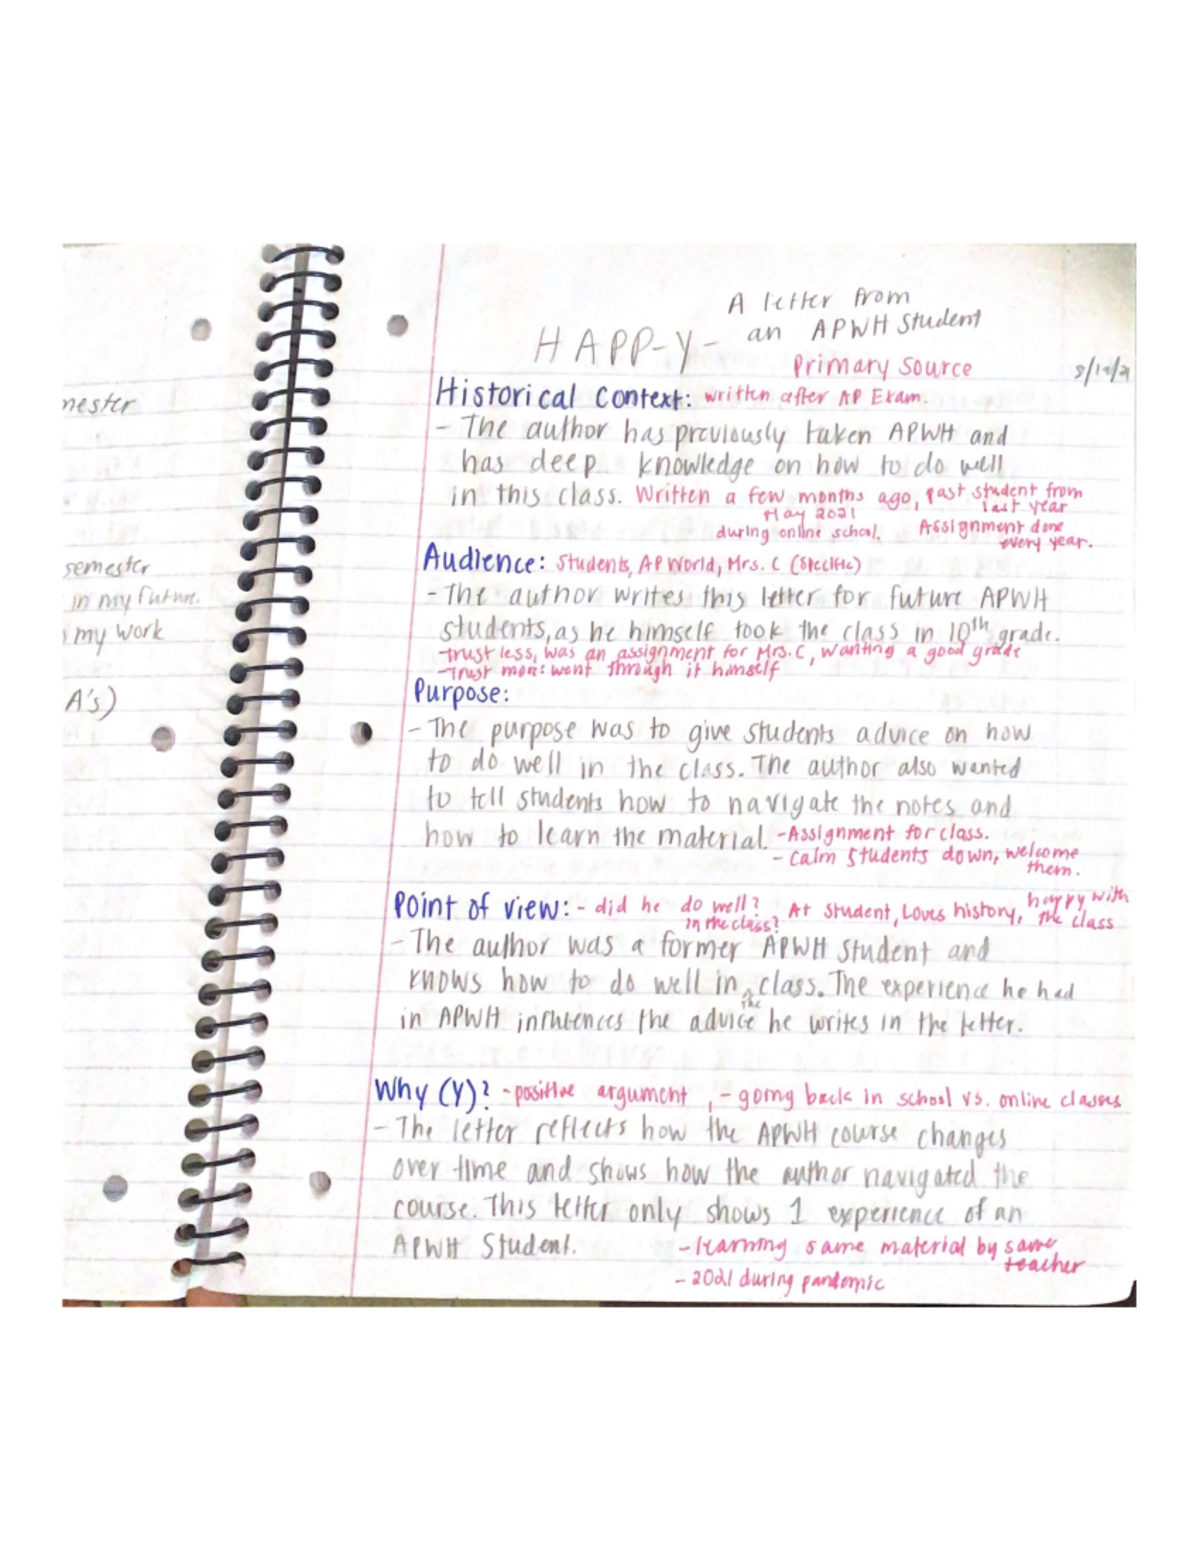 nester
semester
in my future.
my work
A's)
A letter from
an APWH Student
HAPP-Y-
Primary Source
Historical Context: written after AP Exam.
- The author has previously taken APWH and
has deep knowledge on how to do well
in this class. Written a few months ago, past student from
last year
May 2021
during online school. Assignment done
every year.
Audience: Students, AP World, Mrs. C (specific)
- The author writes this letter for future APWH
students, as he himself took the class in 10th grade.
-trust less, was an assignment for Mrs. C, wanting a good grade
-Trust more: went through it himself
Purpose:
- The purpose was to give students advice on how
to do well in the class. The author also wanted
to tell students how to navigate the notes and
how to learn the material. -Assignment for class.
- calm students down, welcome
them.
Point of view: - did he do well? At student, Loves history, happy with
in the class? the class
- The author was a former APWH student and
knows how to do well in ^ class. The experience he had
the
in APWH influences the advice he writes in the letter.
Why (Y)? - positive argument, - going back in school vs. online classes
- The letter reflects how the APWH course changes
over time and shows how the author navigated the
course. This letter only shows 1 experience of an
APWH Student. - learning same material by same
teacher
- 2021 during pandemic